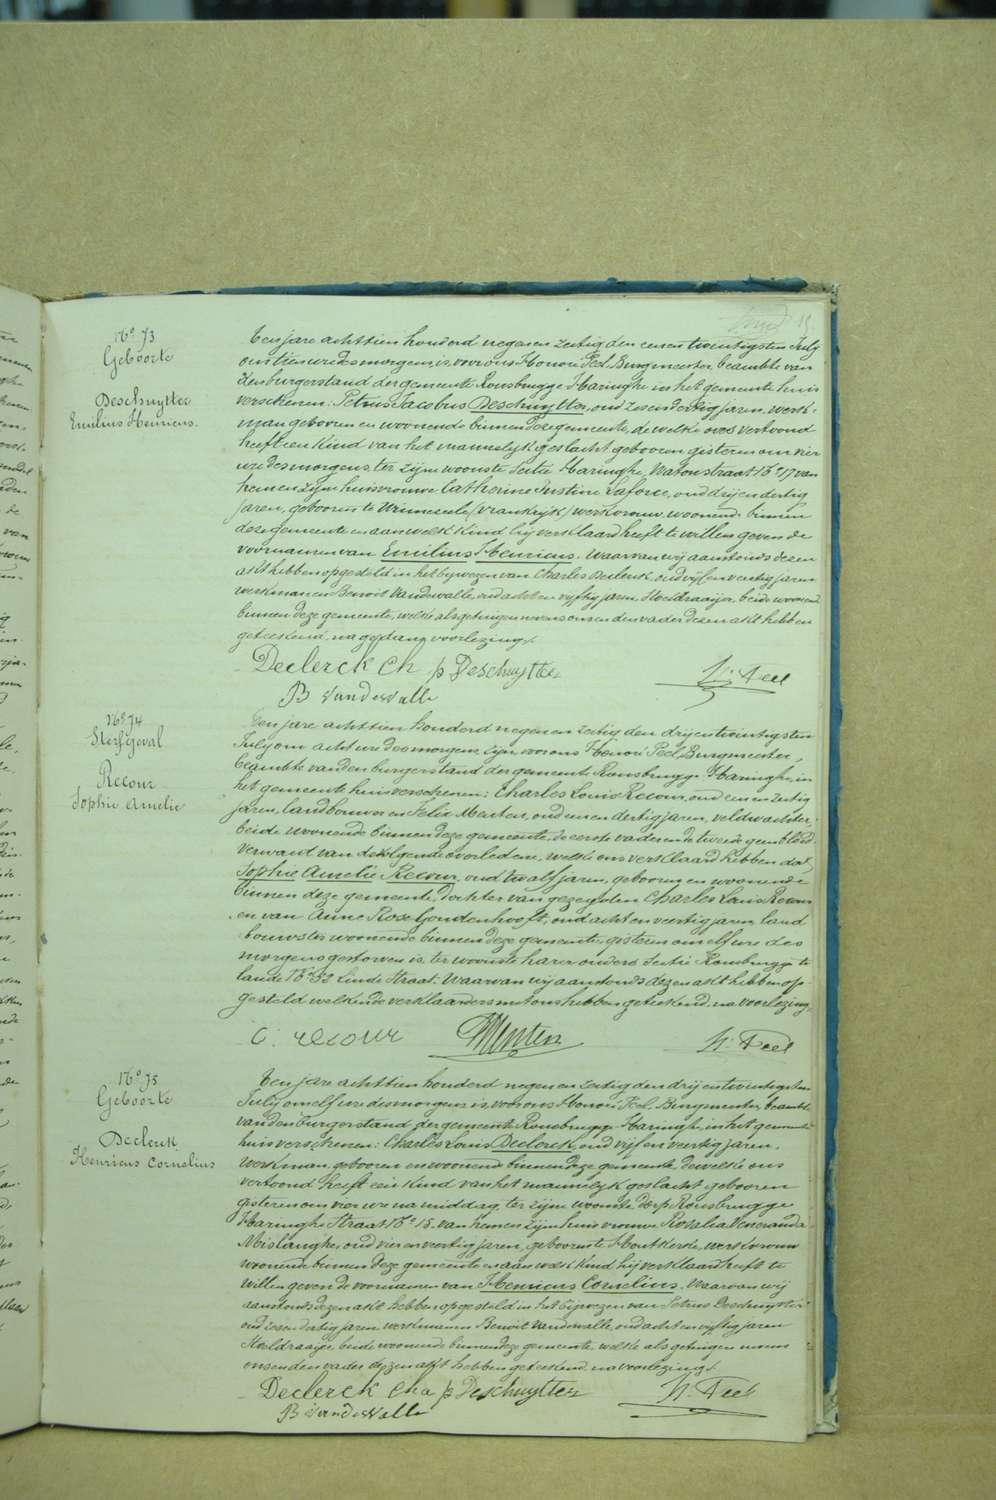 19.
N° 73
Geboorte
Deschuytter
Emilius Henricus.
Ten jare achttien honderd negen en zestig den eenen twintigsten July
om tien ure des morgens, is voor ons Honoré Peel, Burgmeester, beambte van
den burgerstand der gemeente Rousbrugge Haringhe in het gemeente huis
verschenen: Petrus Jacobus Deschuytter, oud zesendertig jaren, werk-
man geboren en woonende binnen deze gemeente, de welke ons vertoond
heeft een kind van het mannelyk geslacht, geboren gisteren om vier
ure des morgens, ter zijne woonste sectie Haringhe, straat N° 17 van
hem en zijne huisvrouwe Catherine Justine Laforce, oud dryendertig
jaren, geboren te Winnezeele (Vrankryk) werkvrouw, woonende binnen
deze gemeente en aan welk kind hij verklaard heeft te willen geven de
voornamen van Emilius Henricus. Waarvan wij aanstonds dezen
akt hebben opgesteld in het bywezen van Charles Declerck, oud vijfenveertig jaren
werkman en Benoit Vandewalle, oud achtenvyftig jaren, Stoeldraaijer, beide woonende
binnen deze gemeente, welke als getuigen nevens ons en den vader dezen akt hebben
geteekend, na gedane voorlezing.
Declerck Ch p Deschuytter H. Peel
B Vandewalle
N° 74
Sterfgeval
Recour
Sophie Amelie
Ten jare achttien honderd negen en zestig den dryentwintigsten
July om acht ure des morgens, zijn voor ons Honoré Peel, Burgmeester,
beambte van den burgerstand der gemeente Rousbrugge Haringhe, in
het gemeente huis verschenen: Charles Louis Recour, oud eenenzestig
jaren, landbouwer en Felix Menten, oud eenendertig jaren, veldwachter,
beide woonende binnen deze gemeente, de eerste vader en de tweede geen bloed-
verwant van de volgende overledene, welke ons verklaard hebben dat
Sophie Amelie Recour, oud twaalf jaren, geboren en woonende
binnen deze gemeente, Dochter van gezegden Charles Louis Recour
en van Anne Rose Goudenhooft, oud achtenveertig jaren, land
bouwster woonende binnen deze gemeente, gisteren om elf ure des
morgens gestorven is, ter woonste harer ouders Sectie Rousbrugge te
lande N° 32 Linde Straat. Waarvan wij aanstonds dezen akt hebben op
gesteld welk de verklaarders met ons hebben geteekend, na voorlezing.
C. recour Menten H. Peel
N° 75
Geboorte
Declerck
Henricus Cornelius
Ten jare achttien honderd negen en zestig den dryentwintigsten
July om elf ure des morgens is voor ons Honoré Peel, Burgmeester, beambte
van den burgerstand der gemeente Rousbrugge Haringhe, in het gemeente
huis verschenen: Charles Louis Declerck, oud vijfenveertig jaren,
werkman, geboren en woonende binnen deze gemeente, dewelke ons
vertoond heeft een kind van het mannelyk geslacht, geboren
gisteren om vier ure na middag, ter zijne woonste dorp Rousbrugge
Haringhe Straat N° 15. van hem en zijne huisvrouwe Rosalia Veneranda
Mislanghe, oud vierenveertig jaren, geboren te Houtkerke, werkvrouw
woonende binnen deze gemeente en aan welk kind hij verklaard heeft te
willen geven de voornamen van Henricus Cornelius. Waarvan wij
aanstonds dezen akt hebben opgesteld in het bywezen van Petrus Deschuytter
oud zesendertig jaren werkman en Benoit Vandewalle, oud achtenvyftig jaren
Stoeldraaijer, beide woonende binnen deze gemeente, welke als getuigen nevens
ons en den vader dezen akt hebben geteekend, na voorlezing.
Declerck Cha p Deschuytter H. Peel
B Vandewalle